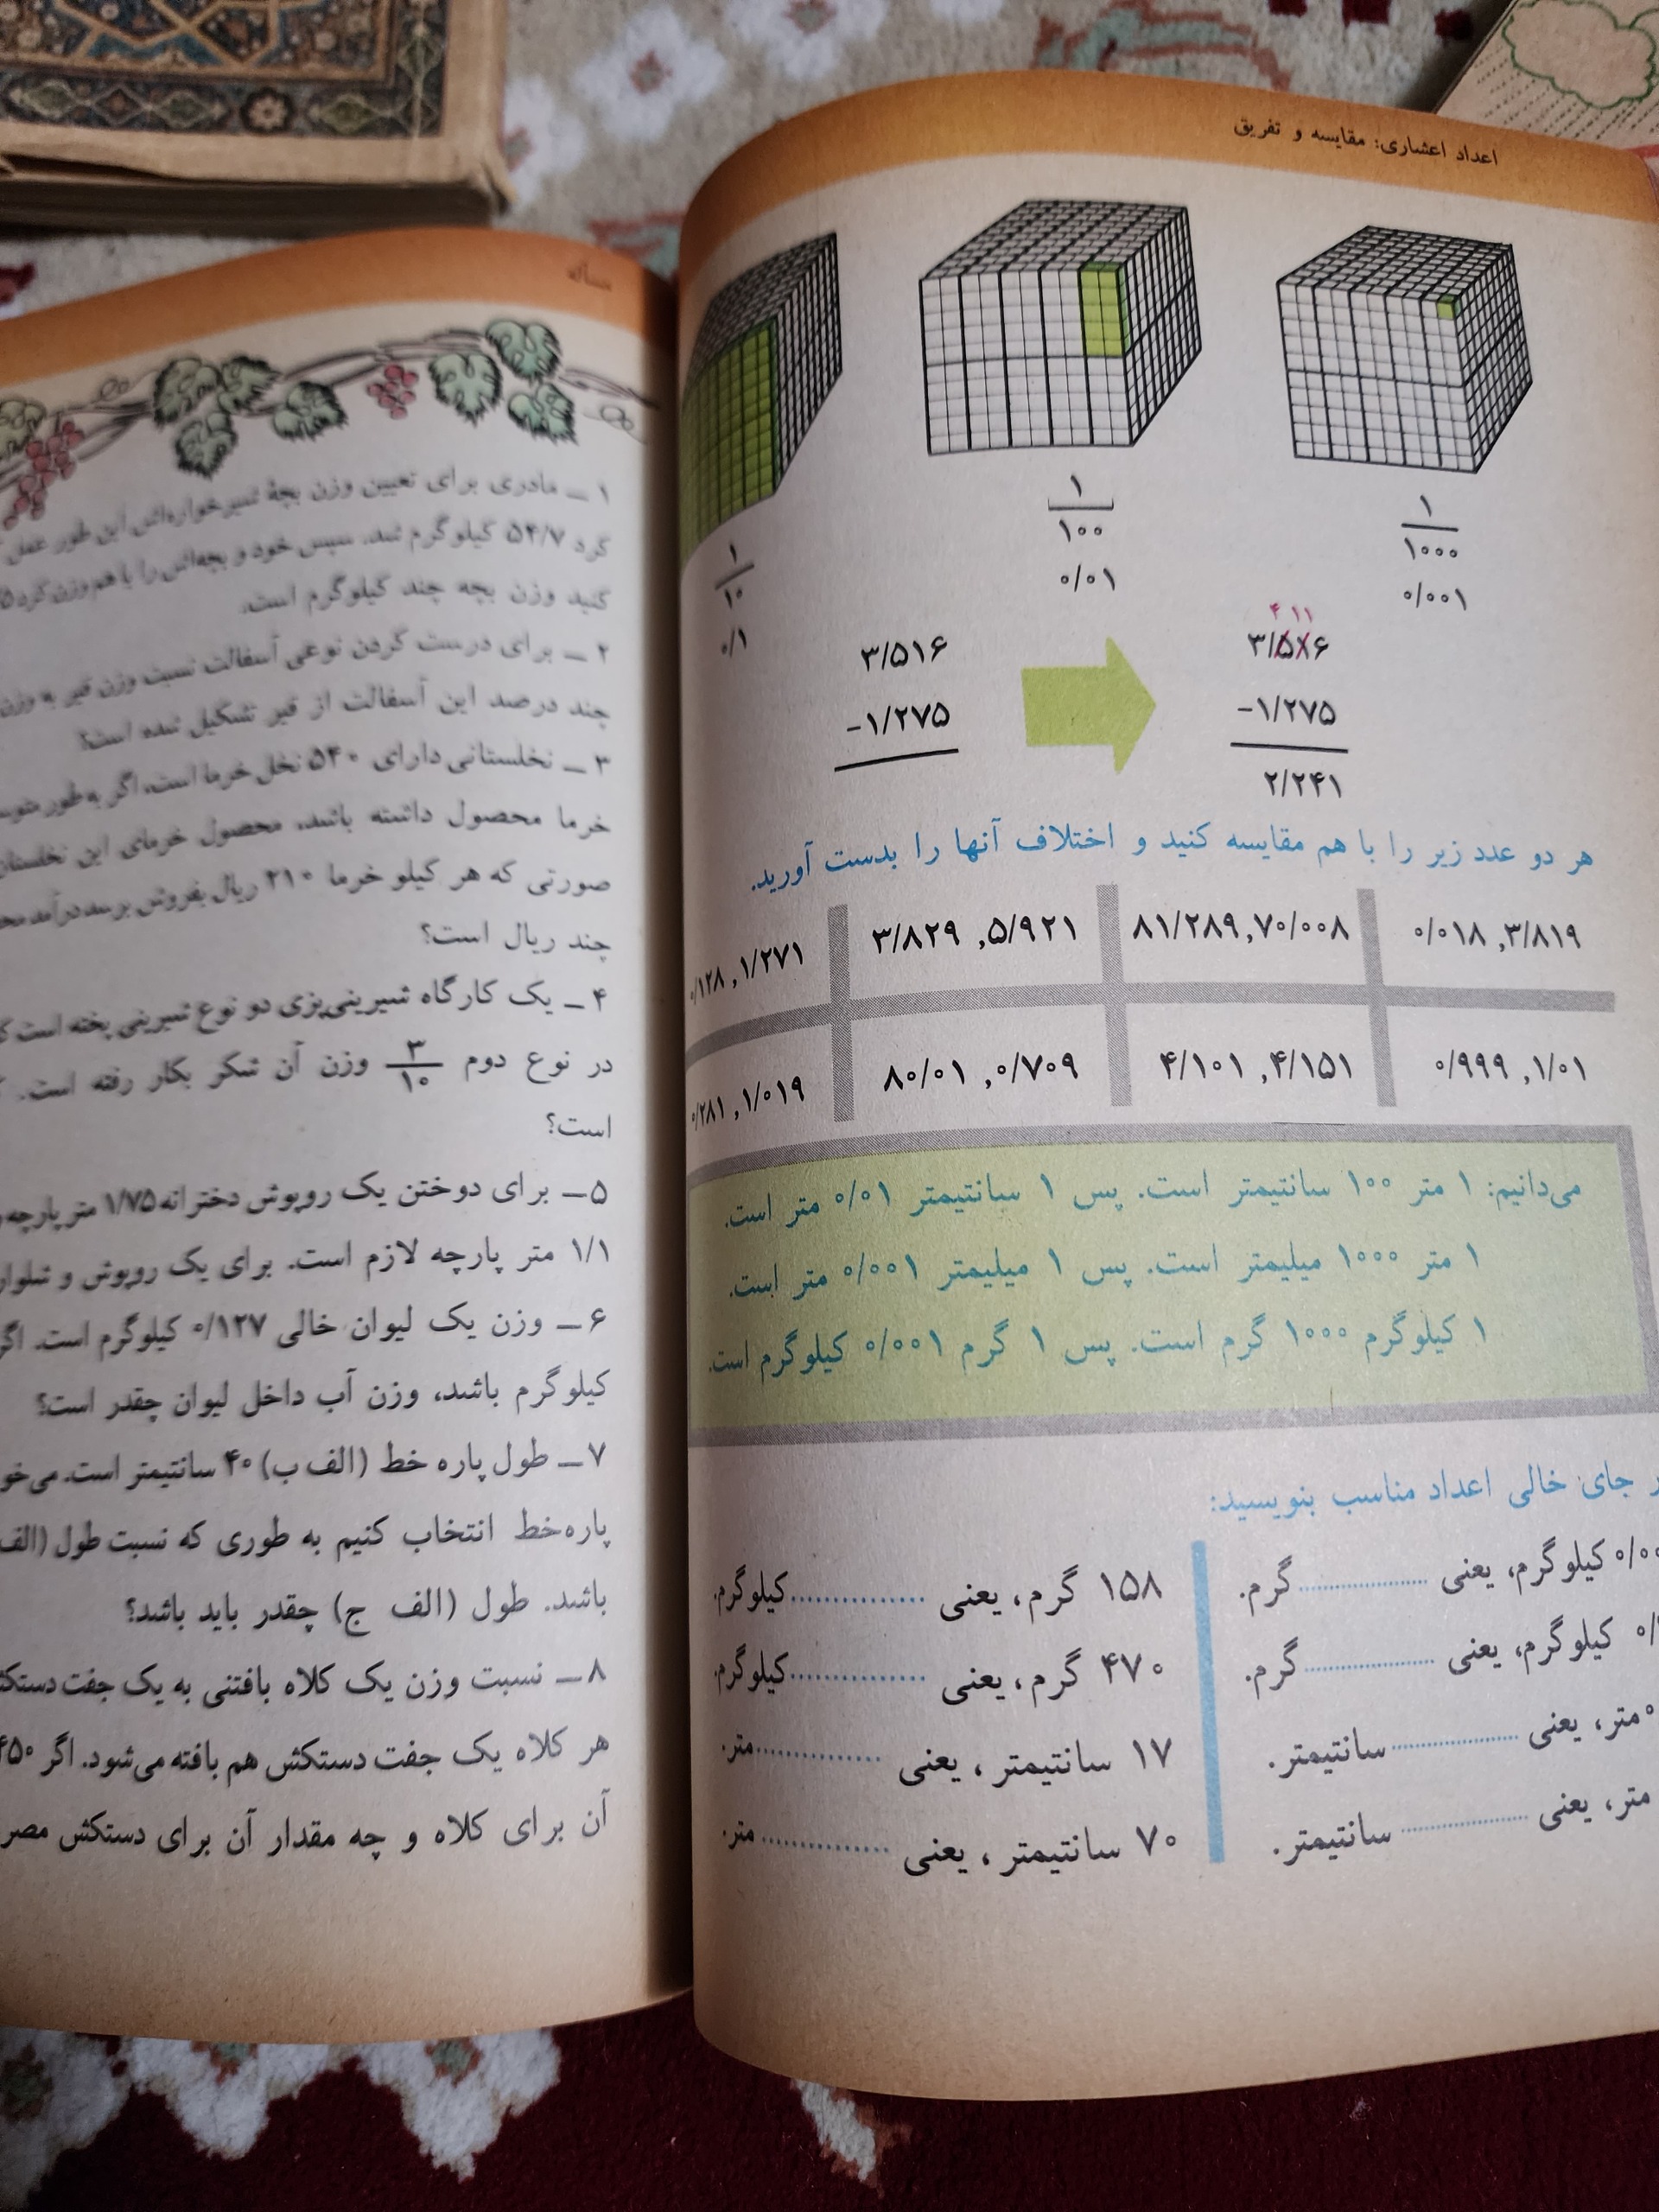 اعداد اعشاری: مقایسه و تفریق
۱
۱۰۰۰
۰/۰۰۱
۱
۱۰۰
۰/۰۱
۱
۱۰
۰/۱
۴ ۱۱
۳/۵۱۶
−۱/۲۷۵
۲/۲۴۱
۳/۵۱۶
−۱/۲۷۵
هر دو عدد زیر را با هم مقایسه کنید و اختلاف آنها را بدست آورید.
۰/۰۱۸ , ۳/۸۱۹
۸۱/۲۸۹ , ۷۰/۰۰۸
۳/۸۲۹ , ۵/۹۲۱
۰/۱۲۸ , ۱/۲۷۱
۰/۹۹۹ , ۱/۰۱
۴/۱۰۱ , ۴/۱۵۱
۸۰/۰۱ , ۰/۷۰۹
۰/۲۸۱ , ۱/۰۱۹
می‌دانیم: ۱ متر ۱۰۰ سانتیمتر است. پس ۱ سانتیمتر ۰/۰۱ متر است.
۱ متر ۱۰۰۰ میلیمتر است. پس ۱ میلیمتر ۰/۰۰۱ متر است.
۱ کیلوگرم ۱۰۰۰ گرم است. پس ۱ گرم ۰/۰۰۱ کیلوگرم است.
جای خالی اعداد مناسب بنویسید:
کیلوگرم، یعنی .......... گرم.
کیلوگرم، یعنی .......... گرم.
متر، یعنی .......... سانتیمتر.
متر، یعنی .......... سانتیمتر.
۱۵۸ گرم، یعنی .......... کیلوگرم.
۴۷۰ گرم، یعنی .......... کیلوگرم.
۱۷ سانتیمتر، یعنی .......... متر.
۷۰ سانتیمتر، یعنی .......... متر.
مساله
۱ ــ مادری برای تعیین وزن بچهٔ شیرخواره‌اش این طور عمل
کرد ۵۴/۷ کیلوگرم شد. سپس خود و بچه‌اش را با هم وزن کرد
کنید وزن بچه چند کیلوگرم است.
۲ ــ برای درست کردن نوعی آسفالت نسبت وزن قیر به وزن
چند درصد این آسفالت از قیر تشکیل شده است؟
۳ ــ نخلستانی دارای ۵۴۰ نخل خرما است، اگر به طور
خرما محصول داشته باشد، محصول خرمای این
صورتی که هر کیلو خرما ۲۱۰ ریال بفروش برسد درآمد
چند ریال است؟
۴ ــ یک کارگاه شیرینی‌پزی دو نوع شیرینی پخته است
در نوع دوم ۳/۱۰ وزن آن شکر بکار رفته است.
است؟
۵ــ برای دوختن یک روپوش دخترانه ۱/۷۵ متر پارچه
۱/۱ متر پارچه لازم است. برای یک روپوش و
۶ ــ وزن یک لیوان خالی ۰/۱۲۷ کیلوگرم است. اگر
کیلوگرم باشد، وزن آب داخل لیوان چقدر است؟
۷ــ طول پاره خط (الف ب) ۴۰ سانتیمتر است.
پاره‌خط انتخاب کنیم به طوری که نسبت طول (الف
باشد. طول (الف ج) چقدر باید باشد؟
۸ ــ نسبت وزن یک کلاه بافتنی به یک جفت
هر کلاه یک جفت دستکش هم بافته می‌شود. اگر
آن برای کلاه و چه مقدار آن برای دستکش